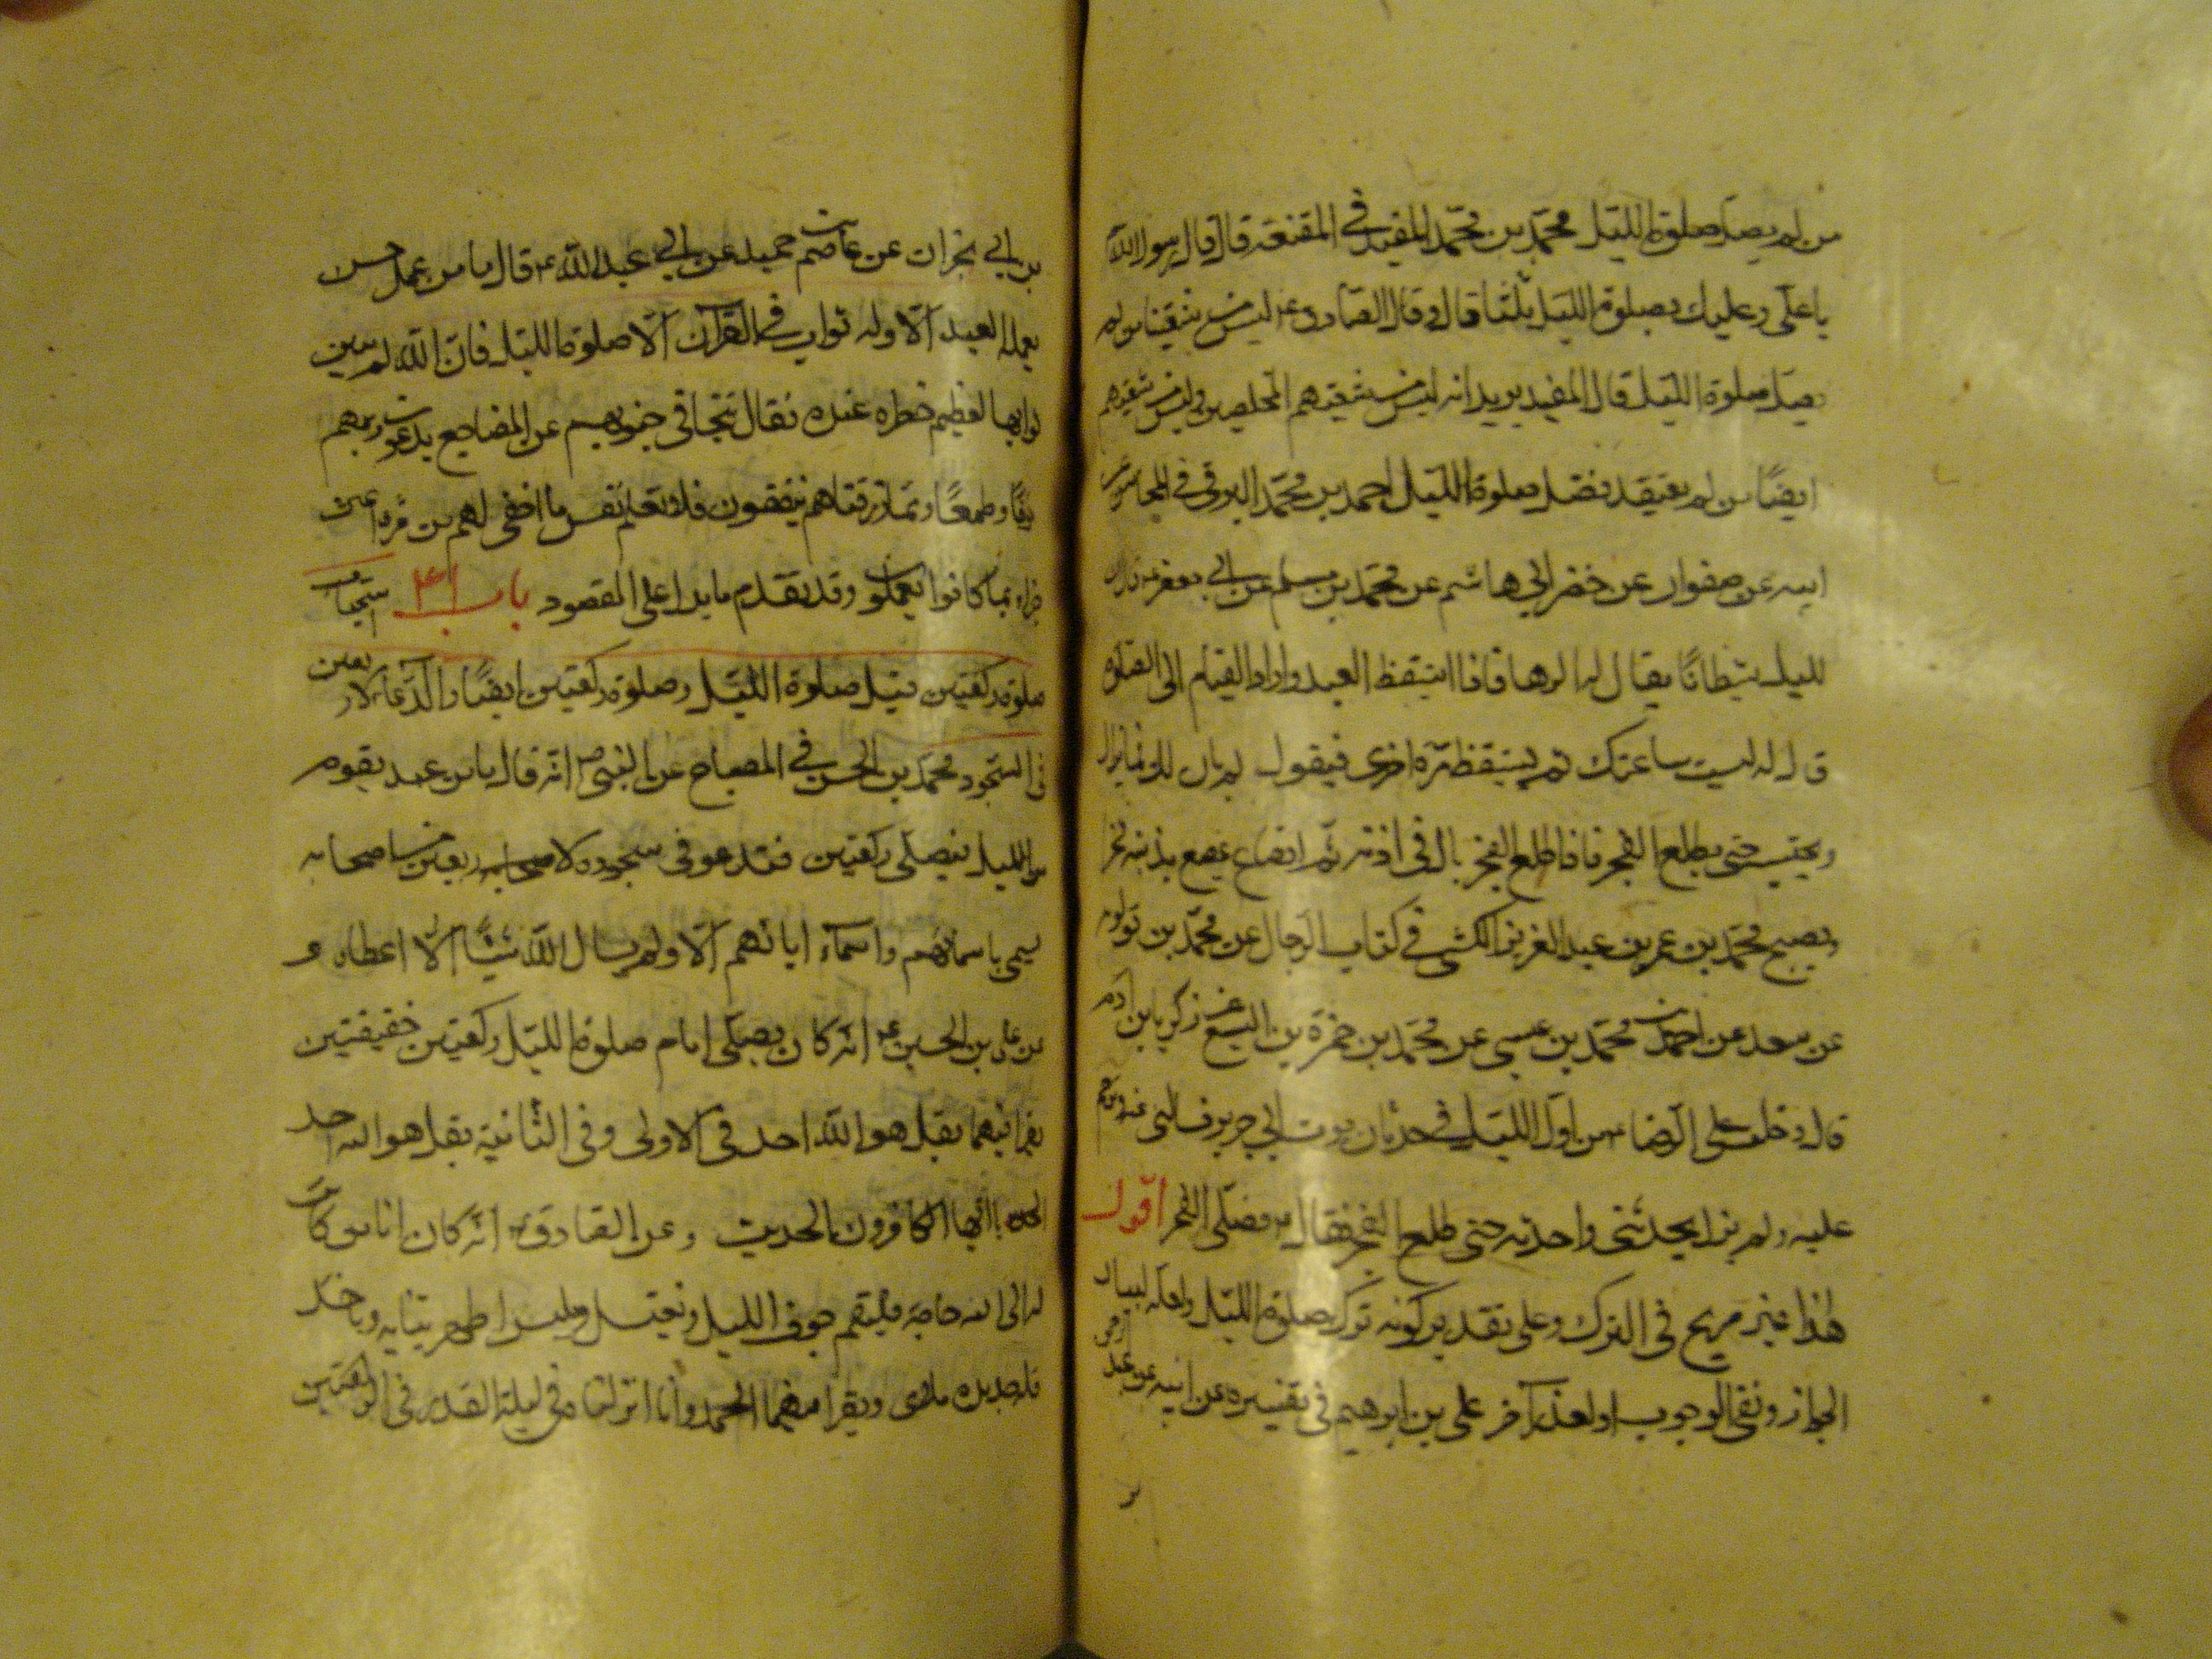 من لم يصل صلوة الليل محمد بن محمد المفيد في المقنعة قال قال رسول الله
يا علي وعليك بصلوة الليل ثلثا قال وقال الصادق ع ليس من شيعتنا من لم
يصل صلوة الليل قال المفيد يريد انه ليس من شيعتهم المخلصين وليس من شيعتهم
ايضًا من لم يعتقد فضل صلوة الليل احمد بن محمد البرقي في المحاسن
ابيه عن صفوان عن خضر ابي هاشم عن محمد بن مسلم عن ابي جعفر ع قال ان
لليل شيطانًا يقال له الرها فاذا استيقظ العبد واراد القيام الى الصلوة
قال له ليست ساعتك ثم يستيقظ مرة اخرى فيقول لم يان لك فما يزال
ويحبسه حتى يطلع الفجر فاذا طلع الفجر بال في اذنه ثم انصاع يمصع بذنبه فخرا
ويصيح محمد بن عمر بن عبد العزيز الكشي في كتاب الرجال عن محمد بن قولويه
عن سعد عن احمد بن محمد بن عيسى عن محمد بن حمزة بن اليسع عن زكريا بن ادم
قال دخلت على الرضا ع من اول الليل في حدثان موت ابي جرير فسالني عنه وترحم
عليه ولم يزل يحدثني واحدثه حتى طلع الفجر فقام ع فصلى الفجر اقول
هذا غير صريح في الترك وعلى تقدير كونه ترك صلوة الليل ولعله لبيان
الجواز ونفي الوجوب او لعذر آخر علي بن ابرهيم في تفسيره عن ابيه عن عبد الرحمن
بن ابي نجران عن عاصم بن حميد عن ابي عبد الله ع قال ما من عمل حسن
يعمله العبد الّا وله ثواب في القرآن الّا صلوة الليل فان الله لم يبين
ثوابها لعظيم خطره عنده فقال تتجافى جنوبهم عن المضاجع يدعون ربهم
خوفًا وطمعًا ومما رزقناهم ينفقون فلا تعلم نفس ما اخفي لهم من قرة اعين
جزاء بما كانوا يعملون وقد تقدم ما يدل على المقصود باب ٤١ استحباب
صلوة ركعتين قبل صلوة الليل وصلوة ركعتين ايضًا والدعاء لاربعين
في السجود محمد بن الحسن في المصباح عن النبي ص انه قال ما من عبد يقوم
من الليل فيصلي ركعتين فتدعو في سجوده لاربعين من اصحابه
يسمي باسمائهم واسماء ابائهم الّا ولم يسال الله شيئًا الّا اعطاه و
عن علي بن الحسين ع انه كان يصلي امام صلوة الليل ركعتين خفيفتين
يقرا فيهما بقل هو الله احد في الاولى وفي الثانية بقل هو الله احد
يا ايها الكافرون الحديث وعن الصادق ع انه كان اذا من كانت
له الى الله حاجة فليقم جوف الليل ويغتسل وليلبس اطهر ثيابه وياخذ
قلة جديدة ملاى ويقرا فيها الحمد وانا انزلناه في ليلة القدر في الركعتين